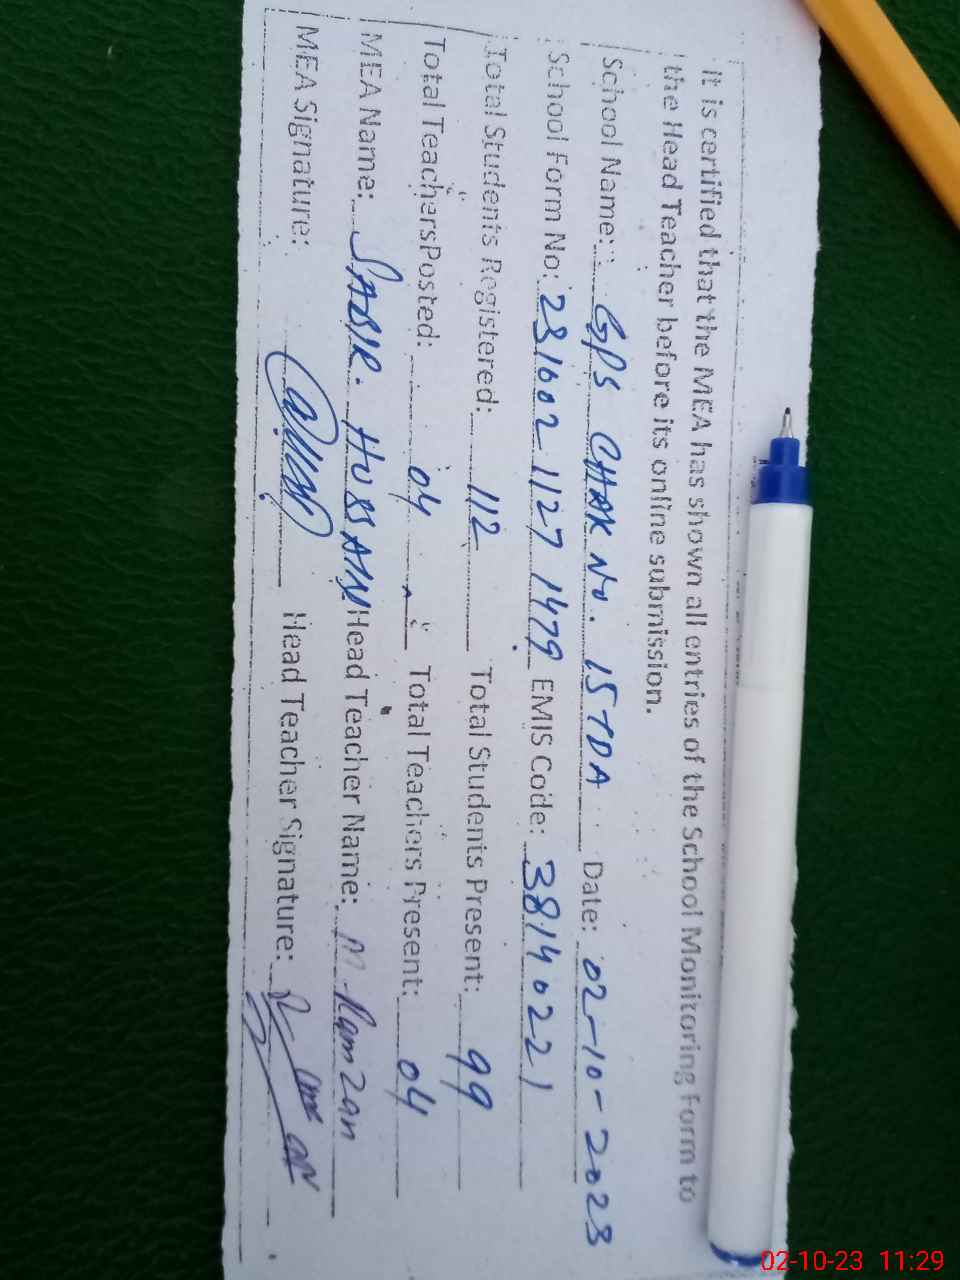 It is certified that the MEA has shown all entries of the School Monitoring Form to
the Head Teacher before its online submission.
School Name: GPS CHAK No. 15 TDA Date: 02-10-2023
School Form No: 231002 1127 1479 EMIS Code: 3814022 1
Total Students Registered: 112 Total Students Present: 99
Total TeachersPosted: 04 Total Teachers Present: 04
MEA Name: SABIR. HUSSAIN Head Teacher Name: M. Ramzan
MEA Signature: Head Teacher Signature:
02-10-23 11:29